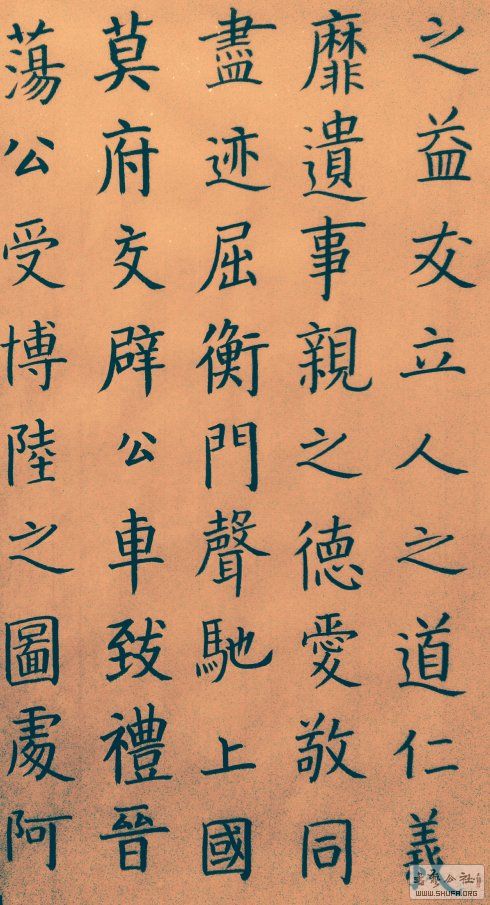 之益友立人之道仁義
靡遺事親之德愛敬同
盡迹屈衡門聲馳上國
莫府交辟公車致禮晉
蕩公受博陸之圖處阿
WWW.SHUFA.ORG